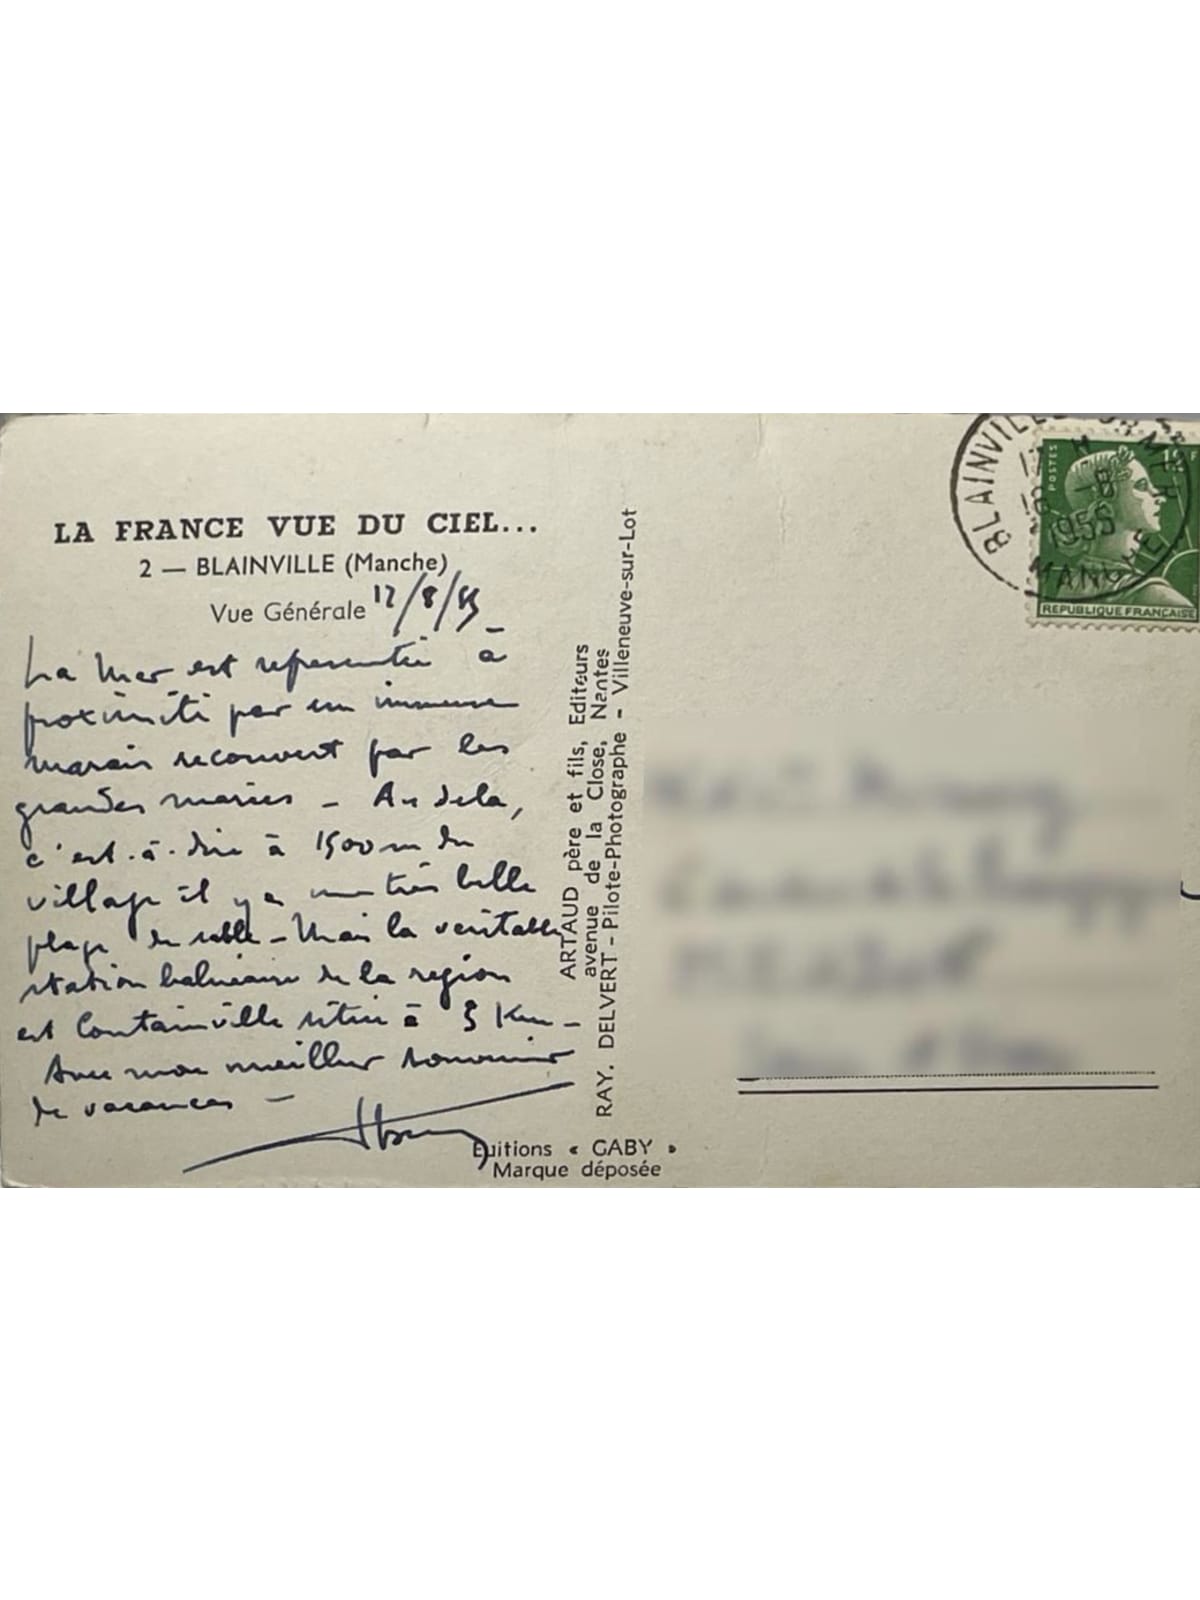 LA FRANCE VUE DU CIEL...
2 — BLAINVILLE (Manche)
Vue Générale 12/8/55
La Mer est representée à
proximité par un immense
marais recouvert par les
grandes marées - Au dela,
c'est-à-dire à 1500 m du
village il y a une très belle
plage de sable - Mais la veritable
station balnéaire de la region
est Coutainville située à 3 Km -
Avec mon meilleur souvenir
de vacances -
Editions « GABY »
Marque déposée
ARTAUD père et fils, Editeurs
avenue de la Close, Nantes
RAY. DELVERT - Pilote-Photographe - Villeneuve-sur-Lot
BLAINVILLE SUR MER
1955
MANCHE
POSTES
REPUBLIQUE FRANÇAISE